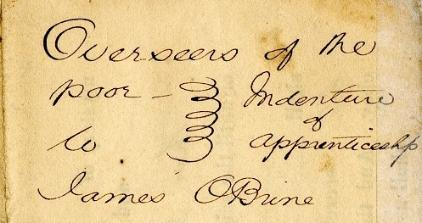 Overseers of the
poor – Indenture
of
to apprenticeship
James OBrine